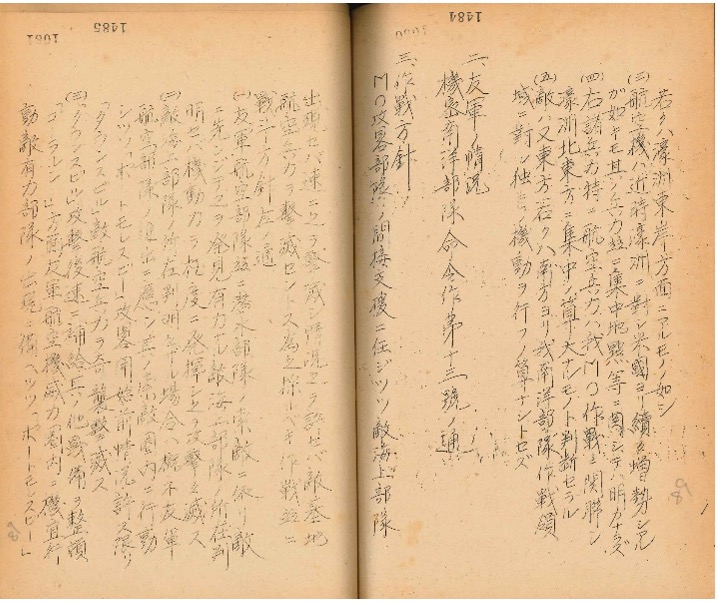 1484
若クハ濠洲東岸方面ニアルモノノ如シ
(三)航空機ハ近時濠洲ニ對シ米國ヨリ續々増勢シアル
ガ如キモ其ノ兵力並ニ集中地點等ニ関シテハ明カナラズ
(四)右諸兵力特ニ航空兵力ハ我MO作戰ニ関聯シ
濠洲北東方ニ集中シ算大ナルモノト判断セラル
(五)敵ハ又東方若クハ南方ヨリ我南洋部隊作戰領
域ニ對シ独モノ機動ヲ行フノ算ナシトセズ
二、友軍ノ情況
機密南洋部隊命令作第十三號ノ通
三、作戰方針
MO攻略部隊ノ間接支援ニ任ジツツ敵海上部隊
89
1485
出現セバ速ニ之ヲ撃滅シ情況之ヲ許セバ敵基地
航空兵力ヲ撃滅セントス為之採ルベキ作戰並ニ
戰斗方針左ノ通
(一)友軍航空部隊並ニ潜水部隊ノ索敵ニ依リ敵
ニ先ンジテ之ヲ発見有力ナル敵海上部隊ノ所在判
明セバ機動力ヲ極度ニ発揮シ之ヲ攻撃撃滅ス
(二)敵海上部隊ノ所在判明セザル場合ハ概ネ友軍
航空部隊ノ進出ニ應ジ其ノ索敵圏内ニ行動
シツツ「ポートモレスビー」攻略開始前情況許ス限リ
「タウンスビル」敵航空兵力ヲ奇襲撃滅ス
(三)「タウンスビル」攻撃後速ニ補給其ノ他戰備ヲ整頓
「コーラル」方面友軍航空機威力圏内ニ機宜行
動敵有力部隊ノ出現ニ備ヘツツ「ポートモレスビー」